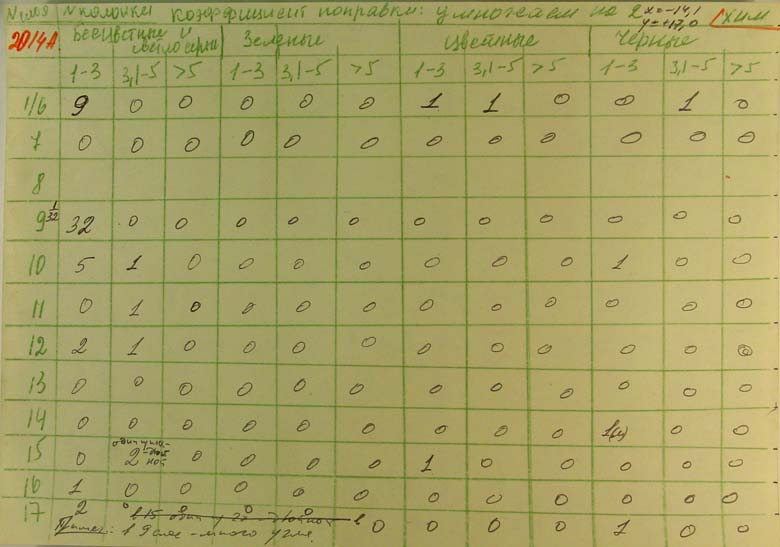 № слоя № колонки Коэффициент поправки: умножаем на 2 x=-14,1 y=+17,0 (хим.
2014А Бесцветные и светлосерые Зеленые Цветные Черные
1-3 3,1-5 >5 1-3 3,1-5 >5 1-3 3,1-5 >5 1-3 3,1-5 >5
1/6 9 0 0 0 0 0 1 1 0 0 1 0
7 0 0 0 0 0 0 0 0 0 0 0 0
8
9 1/32 32 0 0 0 0 0 0 0 0 0 0 0
10 5 1 0 0 0 0 0 0 0 1 0 0
11 0 1 0 0 0 0 0 0 0 0 0 0
12 2 1 0 0 0 0 0 0 0 0 0 0
13 0 0 0 0 0 0 0 0 0 0 0 0
14 0 0 0 0 0 0 0 0 0 1(м) 0 0
15 0 2 один -ной 0 0 0 0 1 0 0 0 0 0
16 1 0 0 0 0 0 0 0 0 0 0 0
17 2 0 0 0 0 0 0 0 0 1 0 0
в 15 один двойной в
Примеч.: в 9 слое - много угля.